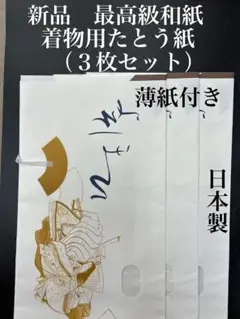 新品　最高級和紙
着物用たとう紙
（３枚セット）
薄紙付き
日本製